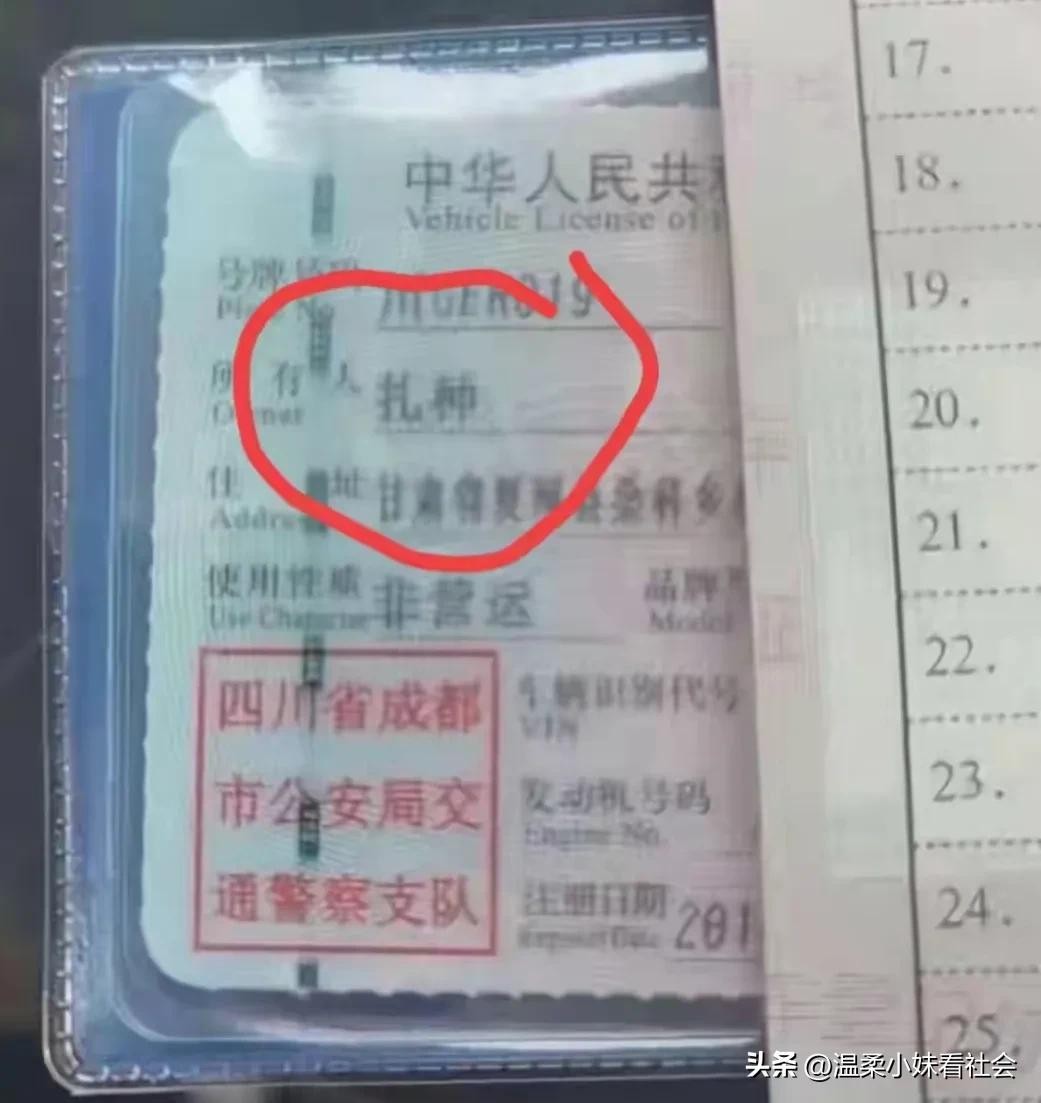 中华人民共和
Vehicle License of
号牌号码
Plate No
所有人 扎种
Owner
住址 甘肃省夏河县桑科乡
Address
使用性质 非营运 品牌
Use Character Model
四川省成都
市公安局交
通警察支队
车辆识别代号
VIN
发动机号码
Engine No.
注册日期 201
Register Date
17.
18.
19.
20.
21.
22.
23.
24.
25.
头条 @温柔小妹看社会